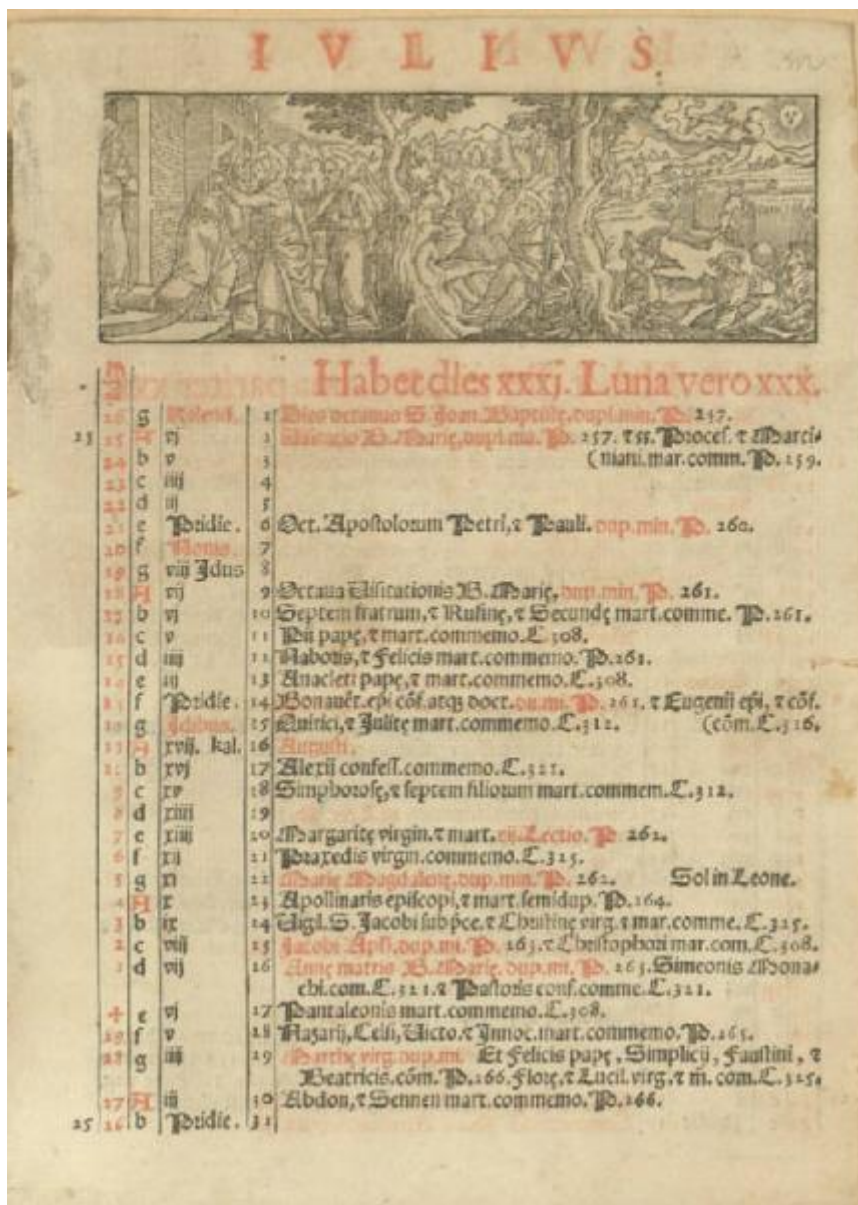 IVLIVS
Habet dies xxxj. Luna vero xxx.
g Kalend. 1 Dies octauus S. Joan. Baptistę, dupl. min. P. 257.
25 A vj 2 Visitatio B. Marię, dupl. ma. P. 257. ⁊ ss. Procef. ⁊ Marci⸗
b v 3 (niani. mar. comm. P. 259.
c iiij 4
d iij 5
e Pridie. 6 Oct. Apostolorum Petri, ⁊ Pauli. dup. min. P. 260.
20 f Nonis. 7
19 g viij Idus 8
18 A vij 9 Octaua Visitationis B. Marię, dup. min. P. 261.
17 b vj 10 Septem fratrum, ⁊ Rufinę, ⁊ Secundę mart. comme. P. 261.
16 c v 11 Pij papę, ⁊ mart. commemo. C. 308.
15 d iiij 12 Naboris, ⁊ Felicis mart. commemo. P. 261.
14 e iij 13 Anacleti papę, ⁊ mart. commemo. C. 308.
13 f Pridie. 14 Bonauēt. epi cōf. atq; doct. du. mi. P. 261. ⁊ Eugenij epi, ⁊ cōf.
g Idibus. 15 Quirici, ⁊ Julitę mart. commemo. C. 312. (cōm. C. 316.
A xvij. kal. 16 Augusti.
b xvj 17 Alexij confess. commemo. C. 321.
9 c xv 18 Simphorosę, ⁊ septem filiorum mart. commem. C. 312.
8 d xiiij 19
7 e xiij 20 Margaritę virgin. ⁊ mart. iij. Lectio. P. 262.
6 f xij 21 Praxedis virgin. commemo. C. 325.
5 g xj 22 Marię Magdalenę, dup. min. P. 262. Sol in Leone.
4 A x 23 Apollinaris episcopi, ⁊ mart. semidup. P. 264.
3 b ix 24 Vigil. S. Jacobi sub pce. ⁊ Christinę virg. ⁊ mar. comme. C. 325.
2 c viij 25 Jacobi Apsti. dup. mi. P. 263. ⁊ Christophori mar. com. C. 308.
1 d vij 26 Annę matris B. Marię. dup. mi. P. 263. Simeonis Mona⸗
chi. com. C. 321. ⁊ Pastoris conf. comme. C. 321.
✠ e vj 27 Pantaleonis mart. commemo. C. 308.
29 f v 28 Nazarij, Celsi, Victo. ⁊ Innoc. mart. commemo. P. 265.
28 g iiij 29 Marthę virg. dup. mi. Et Felicis papę, Simplicij, Faustini, ⁊
Beatricis. cōm. P. 266. Florę, ⁊ Lucil. virg. ⁊ m̄. com. C. 325.
27 A iij 30 Abdon, ⁊ Sennen mart. commemo. P. 266.
25 26 b Pridie. 31